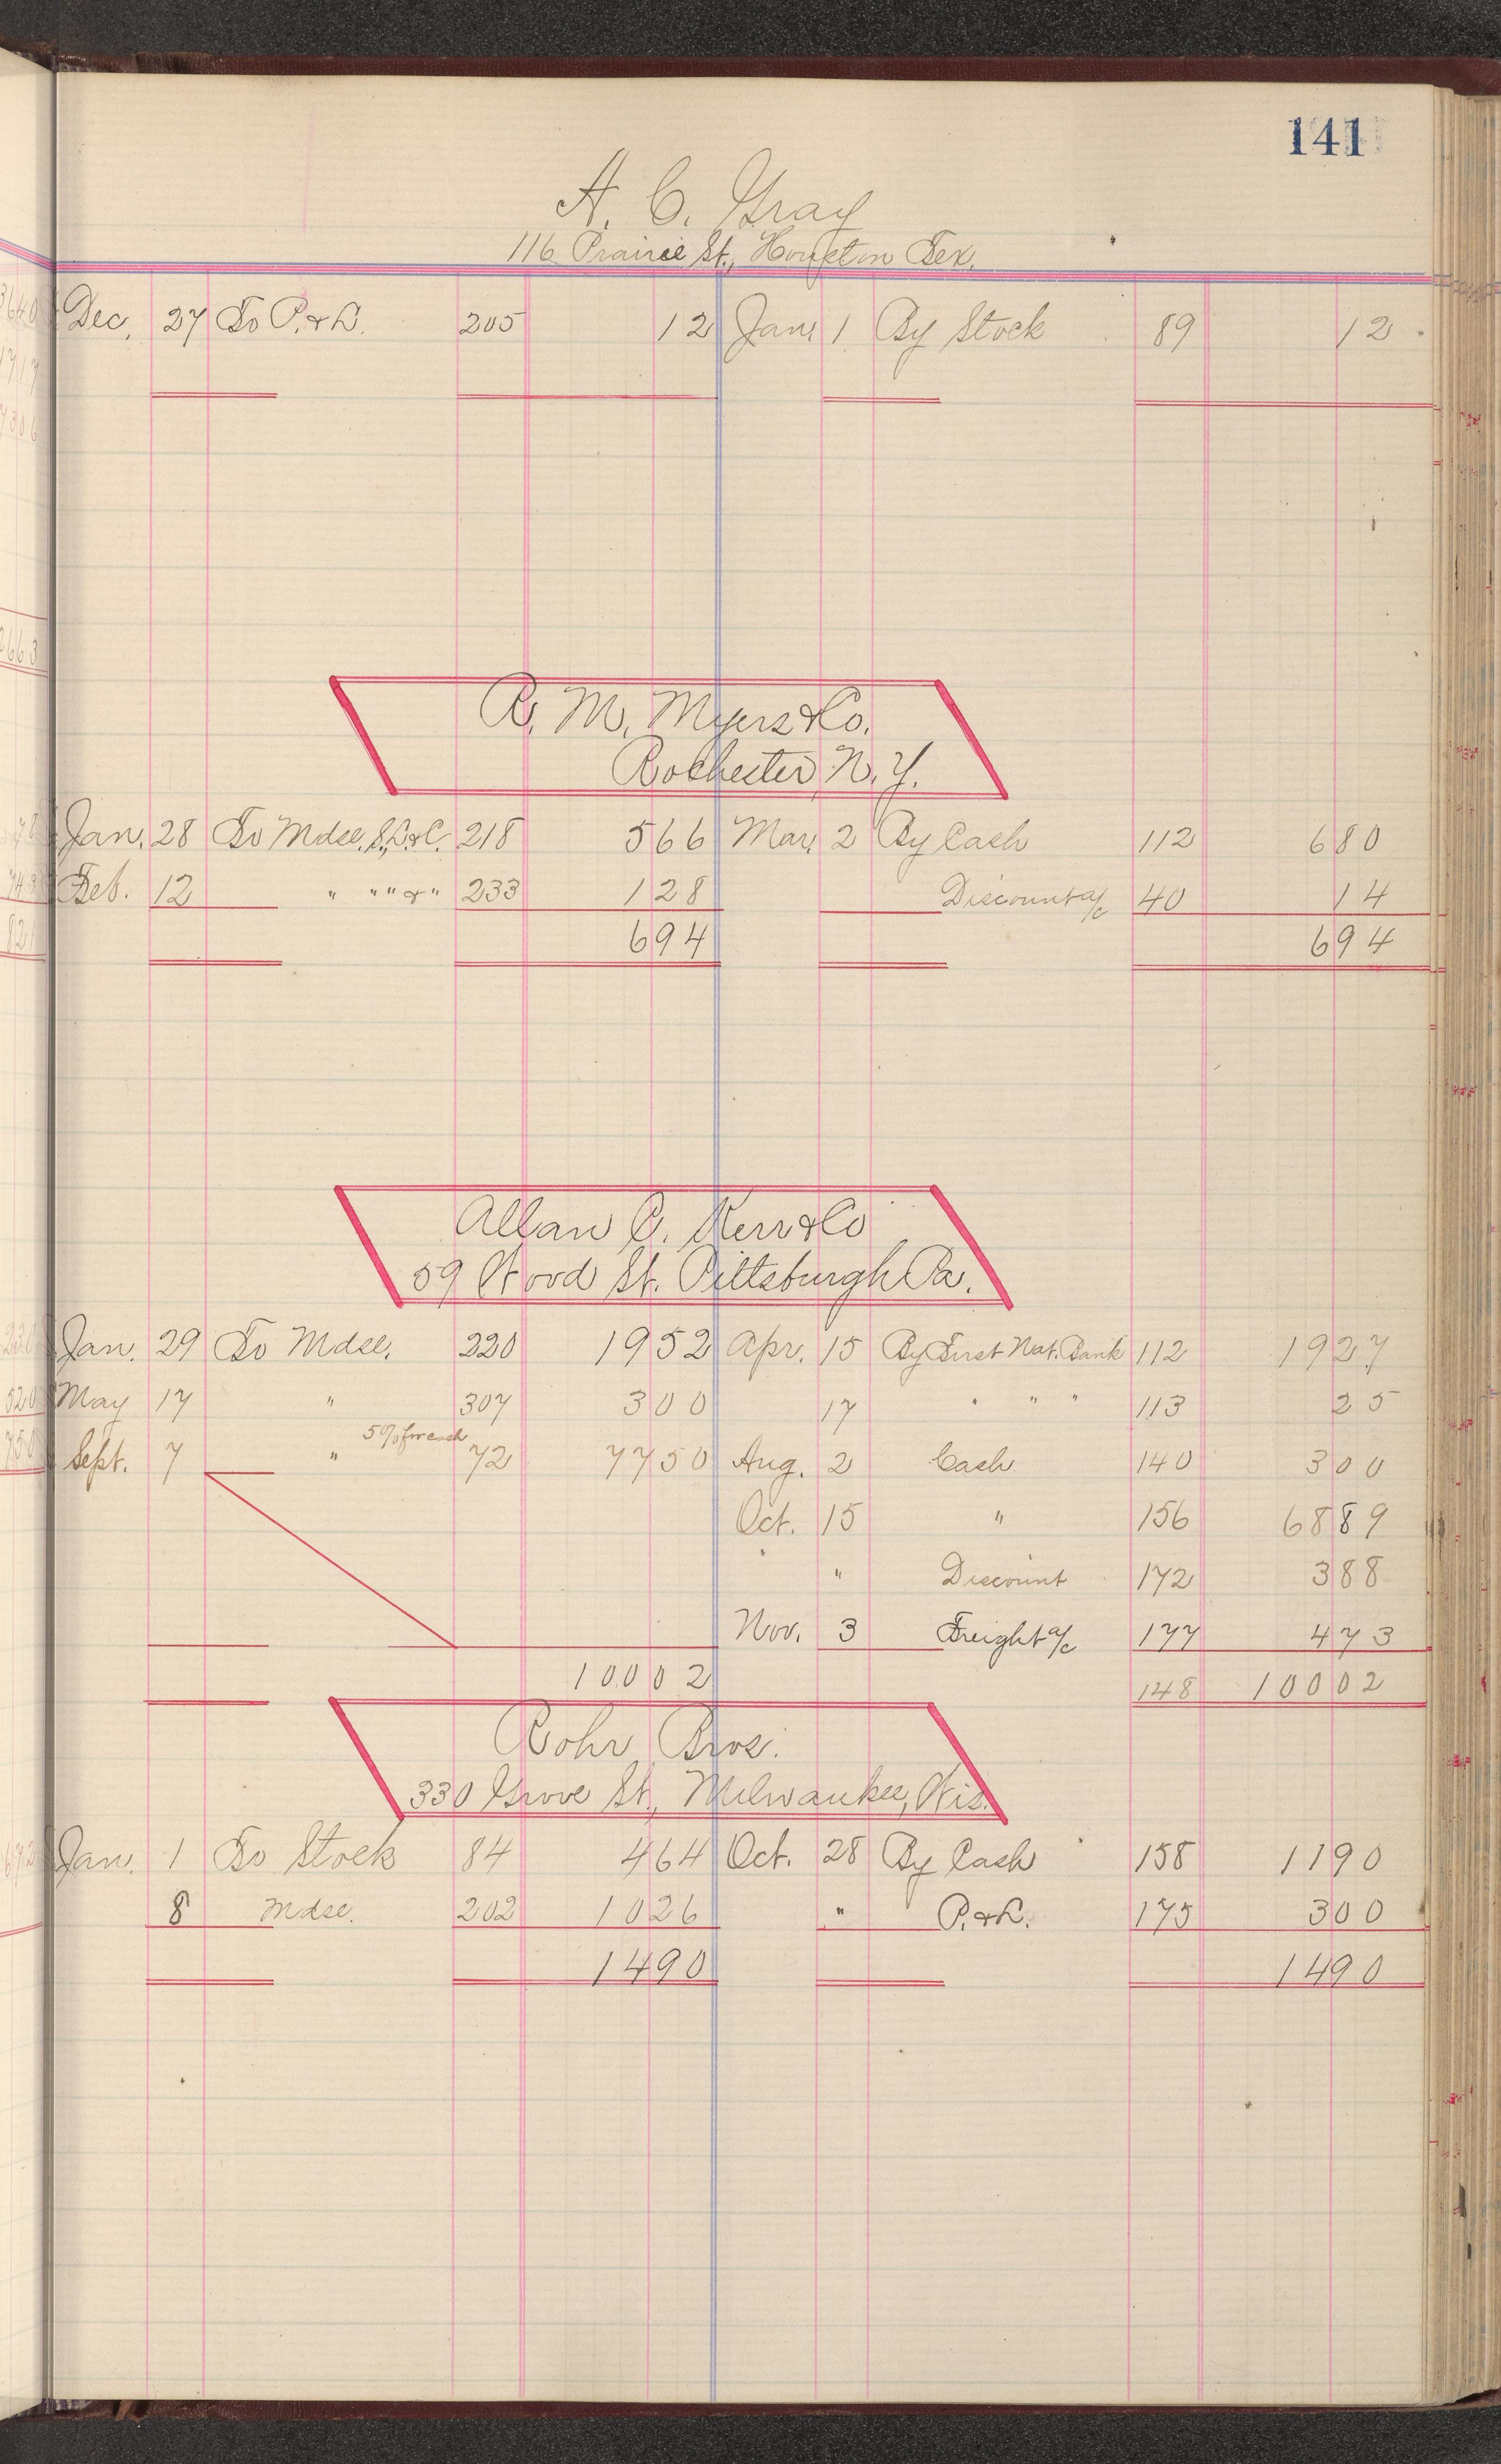 141
A. C. Gray
116 Prairie St., Houston Tex.
Dec. 27 To P. & L. 205 12 Jan. 1 By Stock 89 12
R. M. Myers & Co.
Rochester, N. Y.
Jan. 28 To Mdse. S., L. & C. 218 566 Mar. 2 By Cash 112 680
Feb. 12 " " " & " 233 128 Discount a/c 40 14
694 694
Allan C. Kerr & Co
59 Wood St. Pittsburgh Pa.
Jan. 29 To Mdse. 220 1952 Apr. 15 By First Nat. Bank 112 1927
May 17 " 307 300 17 " " " 113 25
Sept. 7 " 5% for cash 72 7750 Aug. 2 Cash 140 300
Oct. 15 " 156 6889
" Discount 172 388
Nov. 3 Freight a/c 177 473
10002 148 10002
Rohr Bros.
330 Grove St., Milwaukee, Wis.
Jan. 1 To Stock 84 464 Oct. 28 By Cash 158 1190
8 Mdse. 202 1026 " P. & L. 175 300
1490 1490